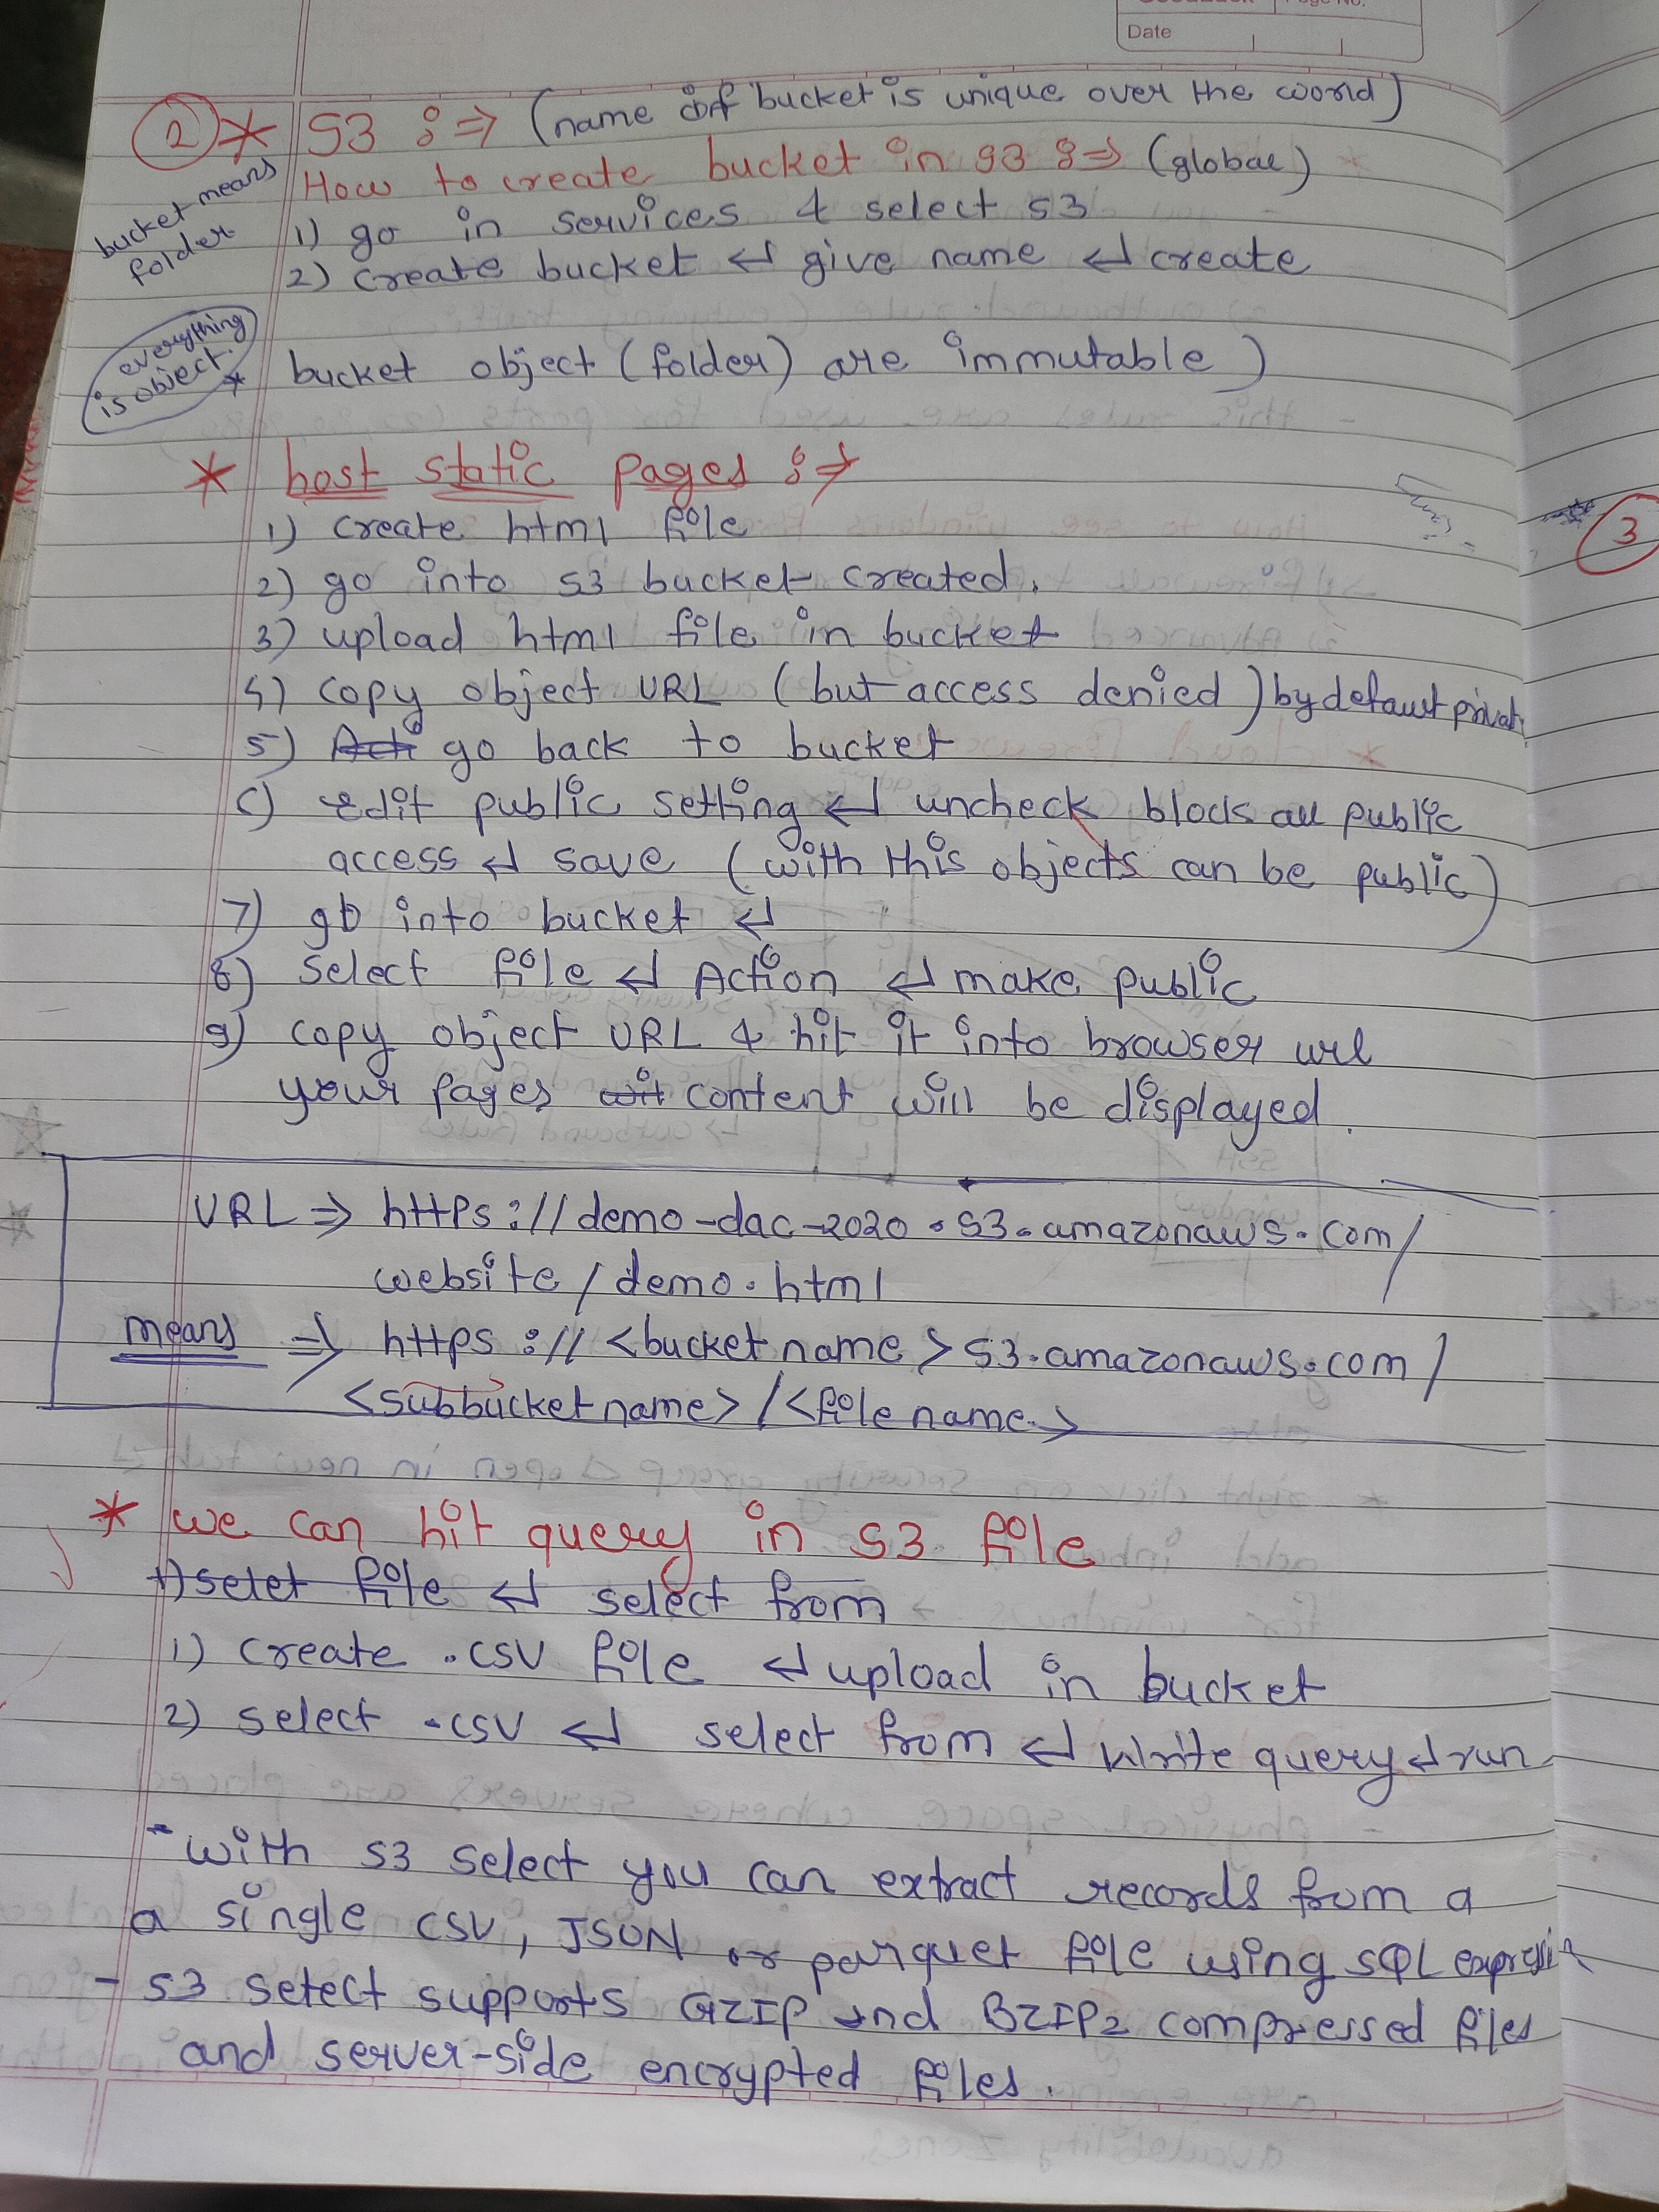 Page No.
Date
② * S3 :⇒ (name of bucket is unique over the world)
How to create bucket in S3 :⇒ (global)
bucket means
folder
1) go in services & select S3
2) create bucket ↵ give name ↵ create
everything
is object
* bucket object (folder) are immutable)
* host static pages :⇒
1) create html file
2) go into S3 bucket created.
3) upload html file in bucket
4) copy object URL (but access denied) by default privat
5) go back to bucket
6) edit public setting ↵ uncheck block all public
access ↵ save (with this objects can be public)
7) go into bucket ↵
8) Select file ↵ Action ↵ make public
9) copy object URL & hit it into browser url
your pages content will be displayed.
3
URL ⇒ https://demo-dac-2020.s3.amazonaws.com/
website/demo.html
means ⇒ https://<bucket name>s3.amazonaws.com/
<subbucket name>/<file name>
* we can hit query in S3 file
1) selet file ↵ select from
1) create .csv file ↵ upload in bucket
2) select .csv ↵ select from ↵ write query ↵ run
- with S3 select you can extract records from a
a single CSV, JSON or parquet file using SQL expressi
- S3 select supports GZIP and BZIP2 compressed files
and server-side encrypted files.